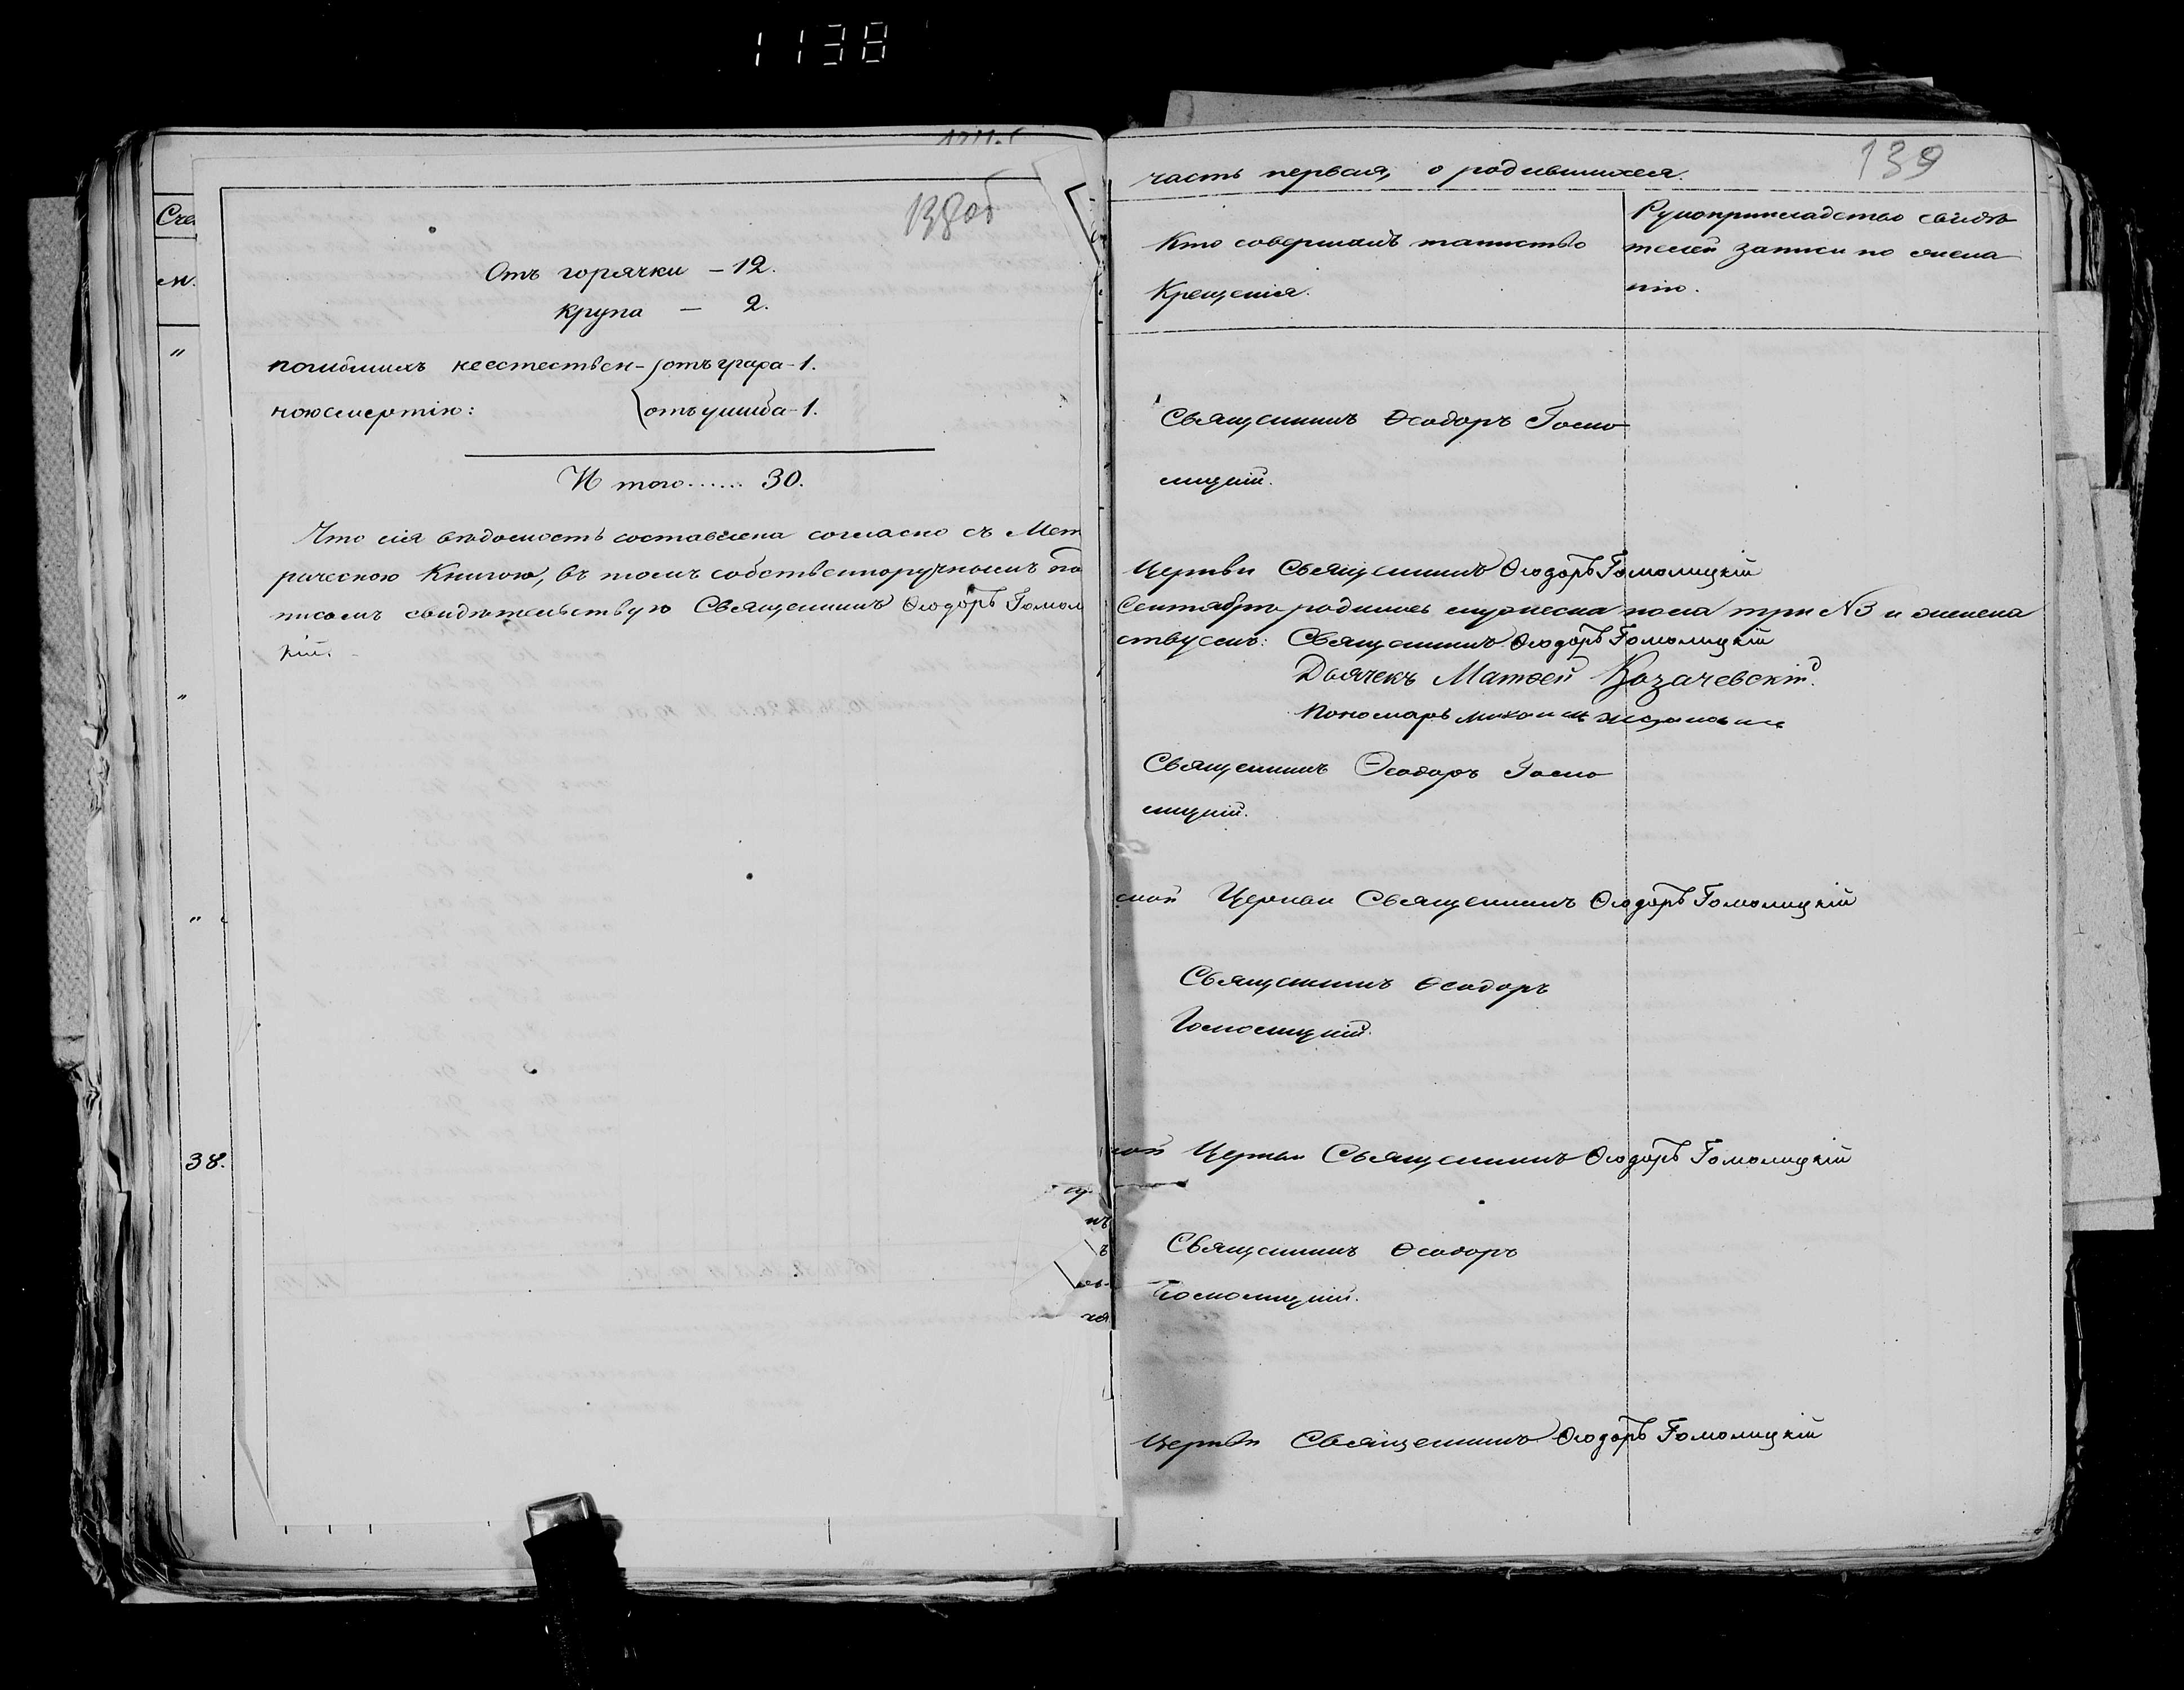 1138
138об
Сче
м.
"
"
"
38.
Отъ горячки – 12.
крупа – 2.
погибшихъ неестествен- отъ удара – 1.
ною смертію: отъ ушиба – 1.
И того...... 30.
Что сія вѣдомость составлена согласно съ Мет
рическою Книгою, въ томъ собственноручнымъ по
писомъ свидѣтельствую Священникъ Ѳеодоръ Гомол
кій.
139
часть первая, о родившихся.
Кто совершалъ таинство
Крещенія.
Рукоприкладство свидѣ
телей записи по жела
нію.
Священникъ Ѳеодоръ Гомо
лицкій.
Церкви Священникъ Ѳеодоръ Гомолицкій
Сентябрѣ родилось мужеска пола три №3 и женска
ствуемъ: Священникъ Ѳеодоръ Гомолицкій
Дьячекъ Матѳей Козачевскій.
Пономарь
Священникъ Ѳеодоръ Гомо
лицкій.
ской Церкви Священникъ Ѳеодоръ Гомолицкій
Священникъ Ѳеодоръ
Гомолицкій.
кой Церкви Священникъ Ѳеодоръ Гомолицкій
Священникъ Ѳеодоръ
Гомолицкій.
Церкви Священникъ Ѳеодоръ Гомолицкій